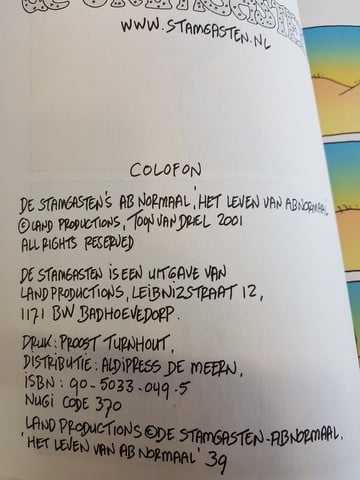 de STAMGASTEN
WWW.STAMGASTEN.NL
COLOFON
DE STAMGASTEN'S AB NORMAAL, 'HET LEVEN VAN AB NORMAAL'
© LAND PRODUCTIONS, TOON VAN DRIEL 2001
ALL RIGHTS RESERVED
DE STAMGASTEN IS EEN UITGAVE VAN
LAND PRODUCTIONS, LEIBNIZSTRAAT 12,
1171 BW BADHOEVEDORP.
DRUK: PROOST TURNHOUT,
DISTRIBUTIE: ALDIPRESS DE MEERN,
ISBN: 90-5033-049-5
NUGI CODE 370
LAND PRODUCTIONS © DE STAMGASTEN-ABNORMAAL.
'HET LEVEN VAN AB NORMAAL' 39